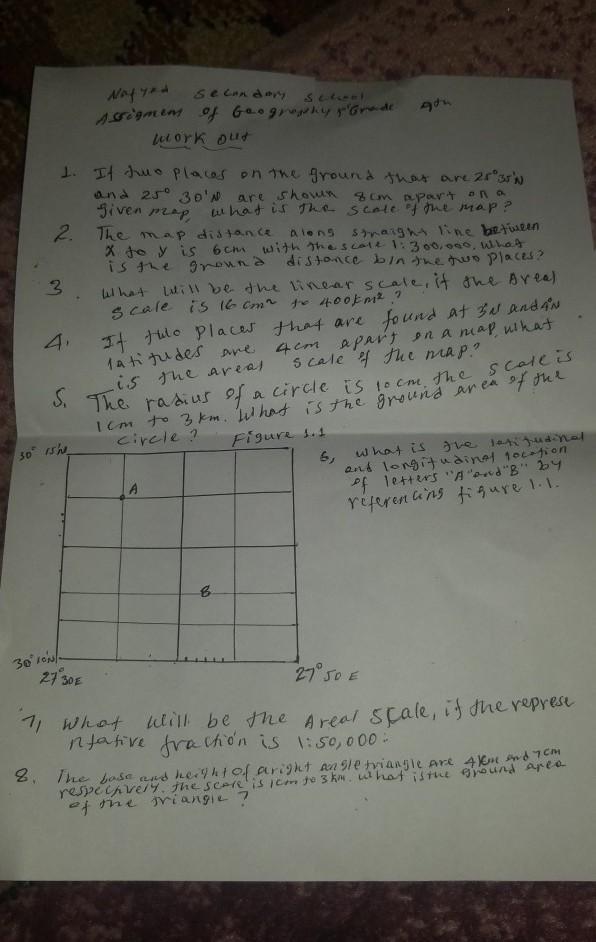 Nafyad Secondary School
Assigment of Geography Grade 9th
Work Out
1. If two places on the ground that are 25°35'N
and 25° 30'N are shown 8cm apart on a
given map, what is the scale of the map?
2. The map distance along straight line between
X to Y is 6cm with the scale 1:300,000. What
is the ground distance b/n the two places?
3. What will be the linear scale, if the Areal
scale is 16cm² to 400km²?
4. If two places that are found at 3°N and 4°N
latitudes are 4cm apart on a map, what
is the areal scale of the map?
5. The radius of a circle is 10cm. the scale is
1cm to 3km. What is the ground area of the
circle? Figure 1.1
30° 15'N
A
B
30° 10'N
27° 30E
27° 50 E
6, What is the latitudinal
and longitudinal location
of letters "A" and "B" by
referencing figure 1.1.
7, What will be the Areal Scale, if the represe
ntative fraction is 1:50,000:
8. The base and height of aright angle triangle are 4cm and 7cm
respectively. the scale is 1cm to 3km. What is the ground area
of the triangle?